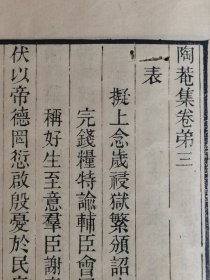 陶菴集卷第三
表
擬上念歲祲獄繁頒詔
完錢糧特諭輔臣會
稱好生至意羣臣謝
伏以帝德罔愆啟殷憂於民